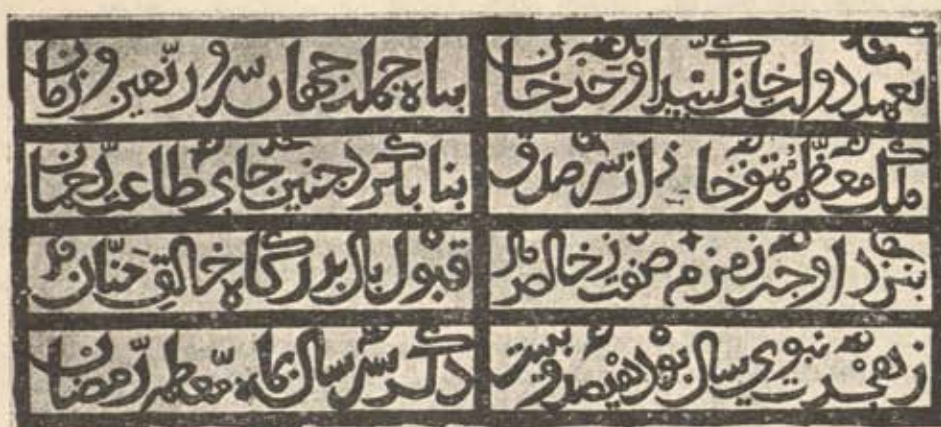 بعهد دولت خان کبیر اوحد خان پناه جمله جهان سرور زمین و زمان
ملک معظم متوخان از سر صدق بنا کرد چنین جای طاعت رحمان
بنزد او چه زمزم صفت خالص قبول باد بدرگاه خالق حنان
ز هجرت نبوی سال بود نهصد و بیست دگر سر سال بماه معظم رمضان